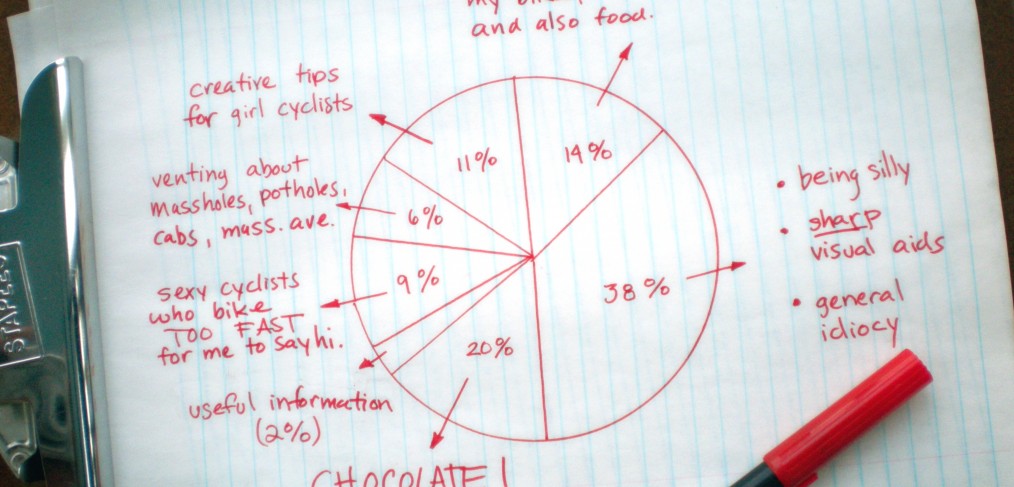 my
and also food.
creative tips
for girl cyclists
11%
14%
venting about
massholes, potholes,
cabs, mass. ave.
6%
• being silly
• sharp
visual aids
• general
idiocy
38%
9%
sexy cyclists
who bike
TOO FAST
for me to say hi.
20%
useful information
(2%)
CHOCOLATE!
STAPLES